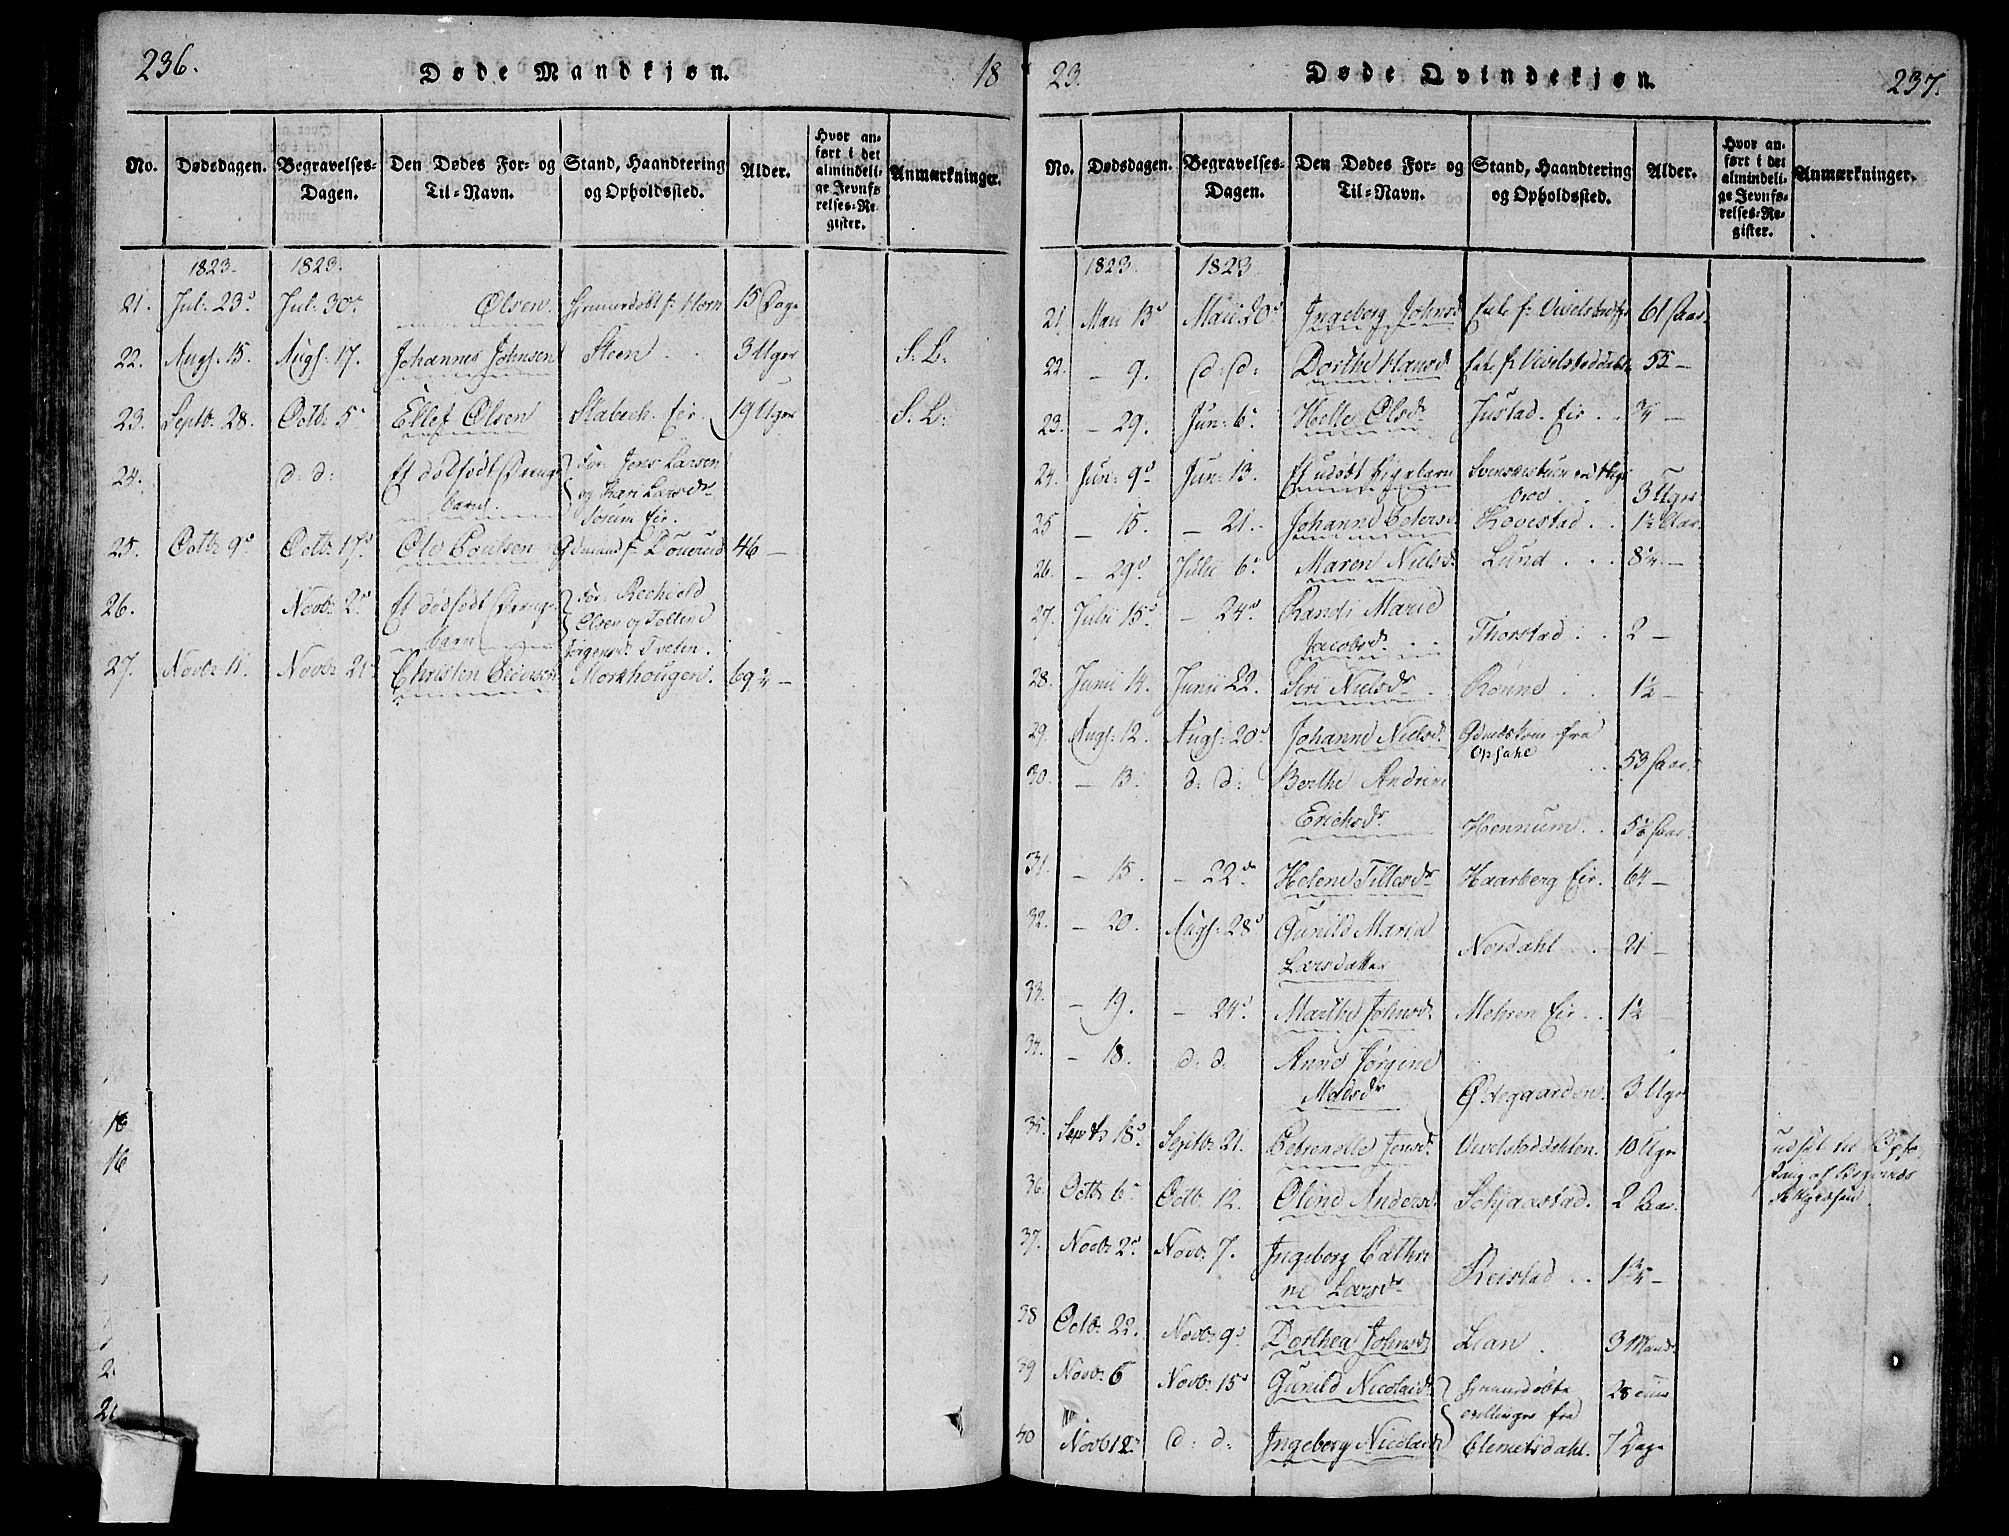 236.
Døde Mandkjøn.
18
No.
Dødsdagen.
Begravelses-
Dagen.
Den Dødes For- og
Til-Navn.
Stand, Haandtering
og Opholdssted.
Alder.
Hvor an-
ført i det
almindeli-
ge Jevnfø-
relses-Re-
gister.
Anmærkninger.
1823. 1823.
21. Jul: 23d Jul: 30te Olsen hjemmedøbt fr: Horn 15 Dage
22. Augs: 15. Augs: 17. Johannes Johnsen Steen 3 Uger S. L:
23. Septb: 28. Octb: 5 Ellef Olsen Stabech Eir. 19 Uger S. L:
24. d: d: Et dødfødt Drenge For: Jens Larsen
barn. og Kari Larsdr
Sørum Eir.
25. Octb: 9d Octb: 17d Ole Poulsen Gdmand f. Døuerud 46 —
26. Novb: 2d Et dødfødt Drenge For:
barn Olsen og
Jørgensd. Tveten.
27. Novb: 11. Novb: 21 Christen Pedersen Morkhougen. 69 1/4 —
16
16
2.
23.
Døde Qvindekjøn.
237.
No.
Dødsdagen.
Begravelses-
Dagen.
Den Dødes For- og
Til-Navn.
Stand, Haandtering
og Opholdssted.
Alder.
Hvor an-
ført i det
almindeli-
ge Jevnfø-
relses-Re-
gister.
Anmærkninger.
1823. 1823
21. Maii 13d Maii 20d Ingeborg Johnsd 61 Aar.
22. — 9. d: d: Dorthe Hansd. 55 —
23. — 29. Jun: 6. Helle Olsdr Justad. Eir. 3/4 —
24. Jun: 9d Jun: 13. Et udøbt Pigebarn
3 Uger
25 — 15. — 21. Johanne Petersd Hovestad 1 1/2 Aar
26. — 29d Julii 6. Maren Nielsd. Lund 8 1/4 —
27. Julii 15d — 24d Randi Marie
Jacobsd. Thorstad 2 —
28. Junii 14. Junii 22. Siri Nielsdr Rønne 1 1/2 —
29. Augs: 12. Augs: 20d Johanne Nielsd. Gdmdskone fra
Opsahl 53 Aar.
30. — 13. d: d: Berthe Andrine
Erichsdr Hennum. 5 1/2 Aar
31. — 15. — 22d Helene Tillesdr Haarberg Eir. 64 —
32. — 20. Augs: 28d Gunild Maria
Larsdatter Nordahl 21 —
33. — 19. — 24d Marthe Johnsd. Mehren Eir. 1 1/2 —
34. — 18. d: d: Anne Jørgine
Madsdr Ødegaarden. 3 Uger
35. Septb 18d Septb: 21. Petronelle Jensd. Vivelstadødden. 10 Uger udsat til
af Bogens
36. Octb: 6 Octb: 12. Oline Andersd Schjærstad. 2 Aar
37. Novb: 2d Novb: 7. Ingeborg Cathri
ne Larsdr Reistad 1 3/4 —
38 Octb: 22. Novb: 9d Dorthea Johnsd Lian. 3 Maad
39 Novb: 6 Novb: 15d Gunild Nicolaid. hjemmedøbte 28
tvillinger fra
40 Novb 12 d: d: Ingeborg Nicolaid Clemetsdahl. 7 Dage